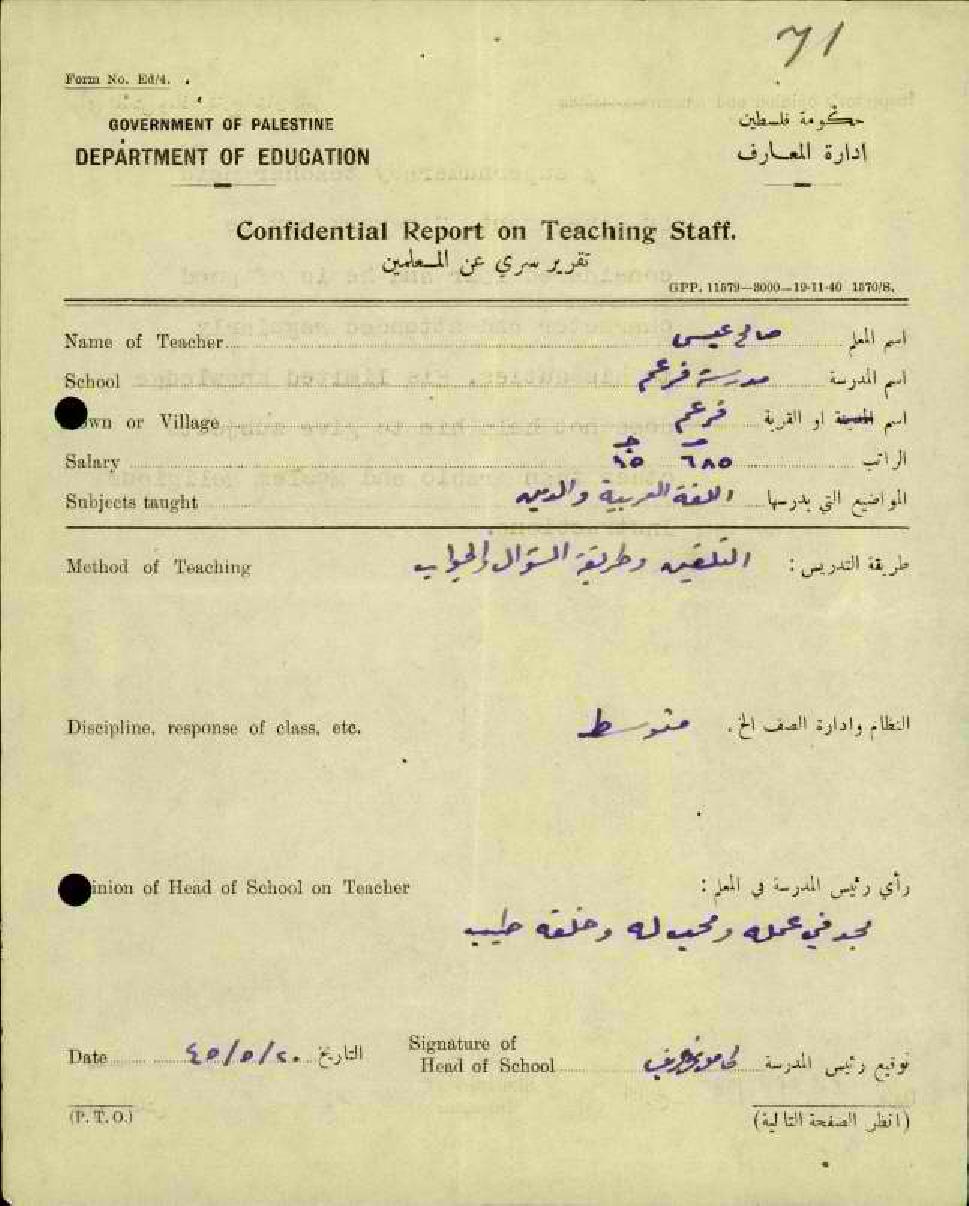 71
Form No. Ed/4.
GOVERNMENT OF PALESTINE
حكومة فلسطين
DEPARTMENT OF EDUCATION
ادارة المعارف
Confidential Report on Teaching Staff.
تقرير سري عن المعلمين
GPP. 11579—3000—19-11-40 1570/S.
Name of Teacher صالح عيسى اسم المعلم
School مدرسة فرعم اسم المدرسة
own or Village فرعم اسم المدينة او القرية
Salary ٦٨٥ ٦٥ الراتب
Subjects taught اللغة العربية والدين المواضيع التي يدرسها
Method of Teaching التلقين وطريقة السؤال والجواب طريقة التدريس :
Discipline, response of class, etc. متوسط النظام وادارة الصف الخ.
inion of Head of School on Teacher رأي رئيس المدرسة في المعلم :
مجد في عمله ومحب له وخلقه طيب
Date ٢٠/٥/٤٥ التاريخ Signature of Head of School توقيع رئيس المدرسة
(P. T. O.) (انظر الصفحة التالية)